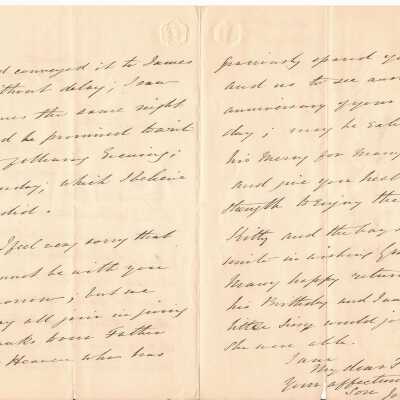 d conveyed it to James
without delay; I saw
mes the same night
d he promised to wit
following Evening;
nday; which I believe
did.
I feel very sorry that
nnot be with you
orrow; but we
ay all join in giving
anks to our Father
Heaven who has
graciously spared yo
and us to see ano
anniversary of your
day; may he Exte
his Mercy for Many
and give you heal
Strength to Enjoy the
Kitty and the boy
unite in wishing Gra
Many happy return
his Birthday and I
little would jo
She were able.
I am
My dear F
Your affection
Son Jo